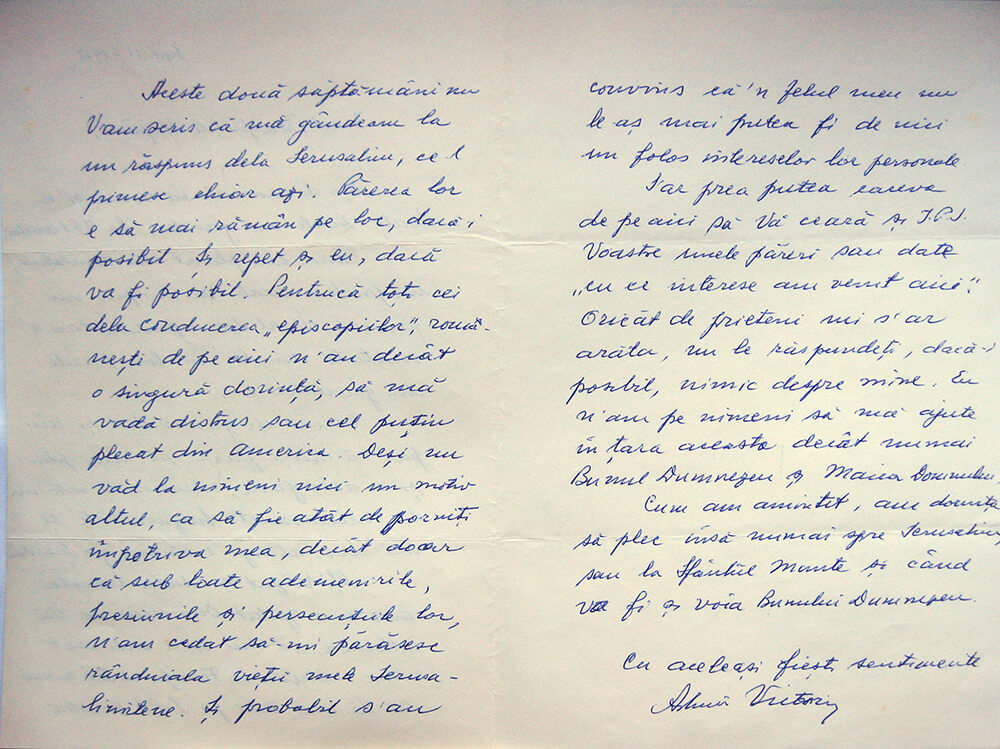 Aceste două săptămâni nu
V'am scris că mă gândeam la
un răspuns dela Ierusalim, ce-l
primesc chiar azi. Părerea lor
e să mai rămân pe loc, dacă-i
posibil. Și repet și eu, dacă
va fi posibil. Pentrucă toți cei
dela conducerea „episcopiilor", româ-
nești de pe aici n'au decât
o singură dorință, să mă
vadă distrus sau cel puțin
plecat din America. Deși nu
văd la nimeni nici un motiv
altul, ca să fie atât de porniți
împotriva mea, decât doar
că sub toate ademenirile,
presiunile și persecuțiile lor,
n'am cedat să-mi părăsesc
rânduiala vieții mele Ierusa-
limitene. Și probabil s'au
convins că'n felul meu nu
le aș mai putea fi de nici
un folos intereselor lor personale
S'ar prea putea careva
de pe aici să Vă ceară și I.P.S.
Voastre unele păreri sau date
„cu ce interese am venit aici".
Oricât de prieteni mi s'ar
arăta, nu le răspundeți, dacă-i
posibil, nimic despre mine. Eu
n'am pe nimeni să mă ajute
în țara aceasta decât numai
Bunul Dumnezeu și Maica Domnului.
Cum am amintit, am dorința
să plec însă numai spre Ierusalim,
sau la Sfântul Munte și când
va fi și voia Bunului Dumnezeu.
Cu aceleași fiești sentimente
Arhim Victorin